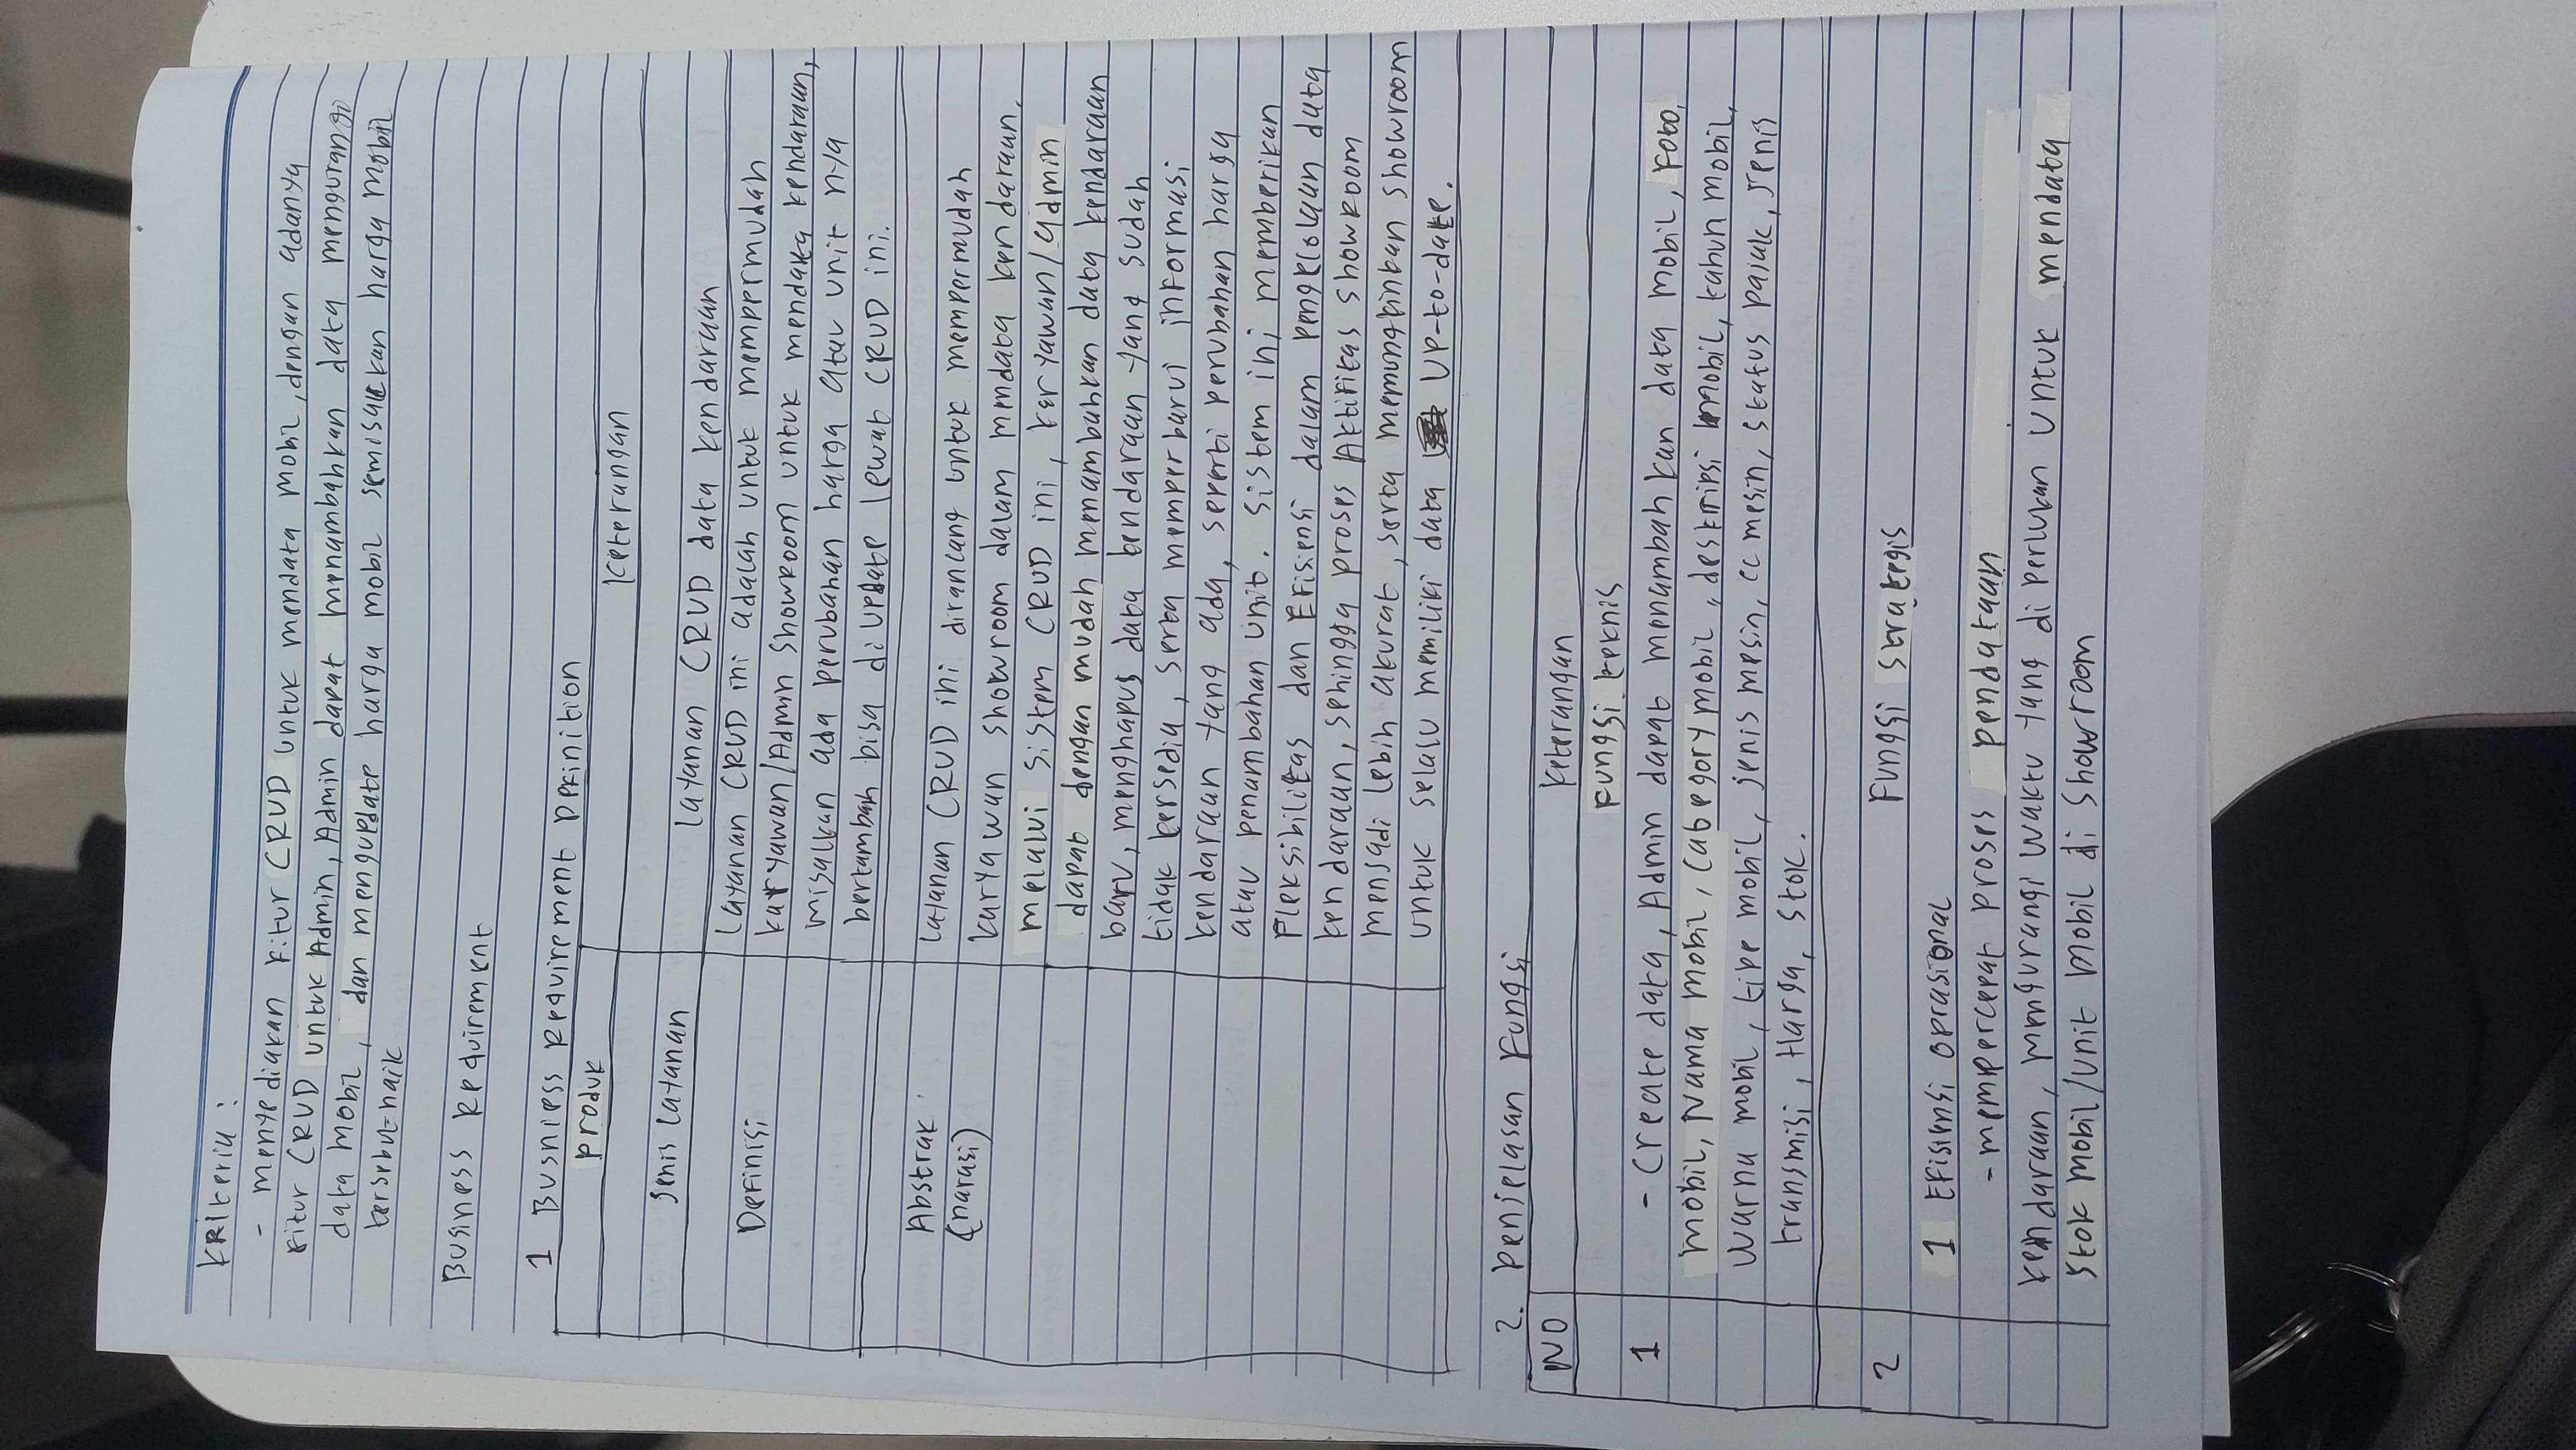 KRIteria :
- menyediakan fitur CRUD untuk mendata mobil, dengan adanya
fitur CRUD untuk Admin, Admin dapat menambahkan data mengurangi
data mobil, dan mengupdate harga mobil semisalkan harga mobil
tersebut naik
Business Requirement
1 Busniess Requirement Definition
produk
keterangan
Jenis Layanan
Layanan CRUD data kendaraan
Definisi
Layanan CRUD ini adalah untuk mempermudah
karyawan/Admin Showroom untuk mendata kendaraan,
misalkan ada perubahan harga atau unit nya
bertambah bisa di update lewat CRUD ini.
Abstrak
(narasi)
Layanan CRUD ini dirancang untuk mempermudah
karyawan showroom dalam mendata kendaraan.
melalui sistem CRUD ini, keryawan/admin
dapat dengan mudah menambahkan data kendaraan
baru, menghapus data kendaraan yang sudah
tidak tersedia, serta memperbarui informasi
kendaraan yang ada, seperti perubahan harga
atau penambahan unit. sistem ini memberikan
Fleksibilitas dan Efisiensi dalam pengelolaan data
kendaraan, sehingga proses Aktifitas showroom
menjadi lebih akurat, serta memungkinkan showroom
untuk selalu memiliki data UP-to-date.
2. Penjelasan Fungsi
NO
Keterangan
1
Fungsi teknis
- Create data, Admin dapat menambahkan data mobil, Foto
mobil, Nama mobil, Category mobil, deskripsi mobil, tahun mobil,
warna mobil, tipe mobil, jenis mesin, cc mesin, status pajak, jenis
transmisi, Harga, Stok.
2
Fungsi strategis
1 Efisiensi oprasional
- mempercepat proses pendataan
kendaraan, mengurangi waktu yang di perlukan untuk mendata
stok mobil/unit mobil di showroom